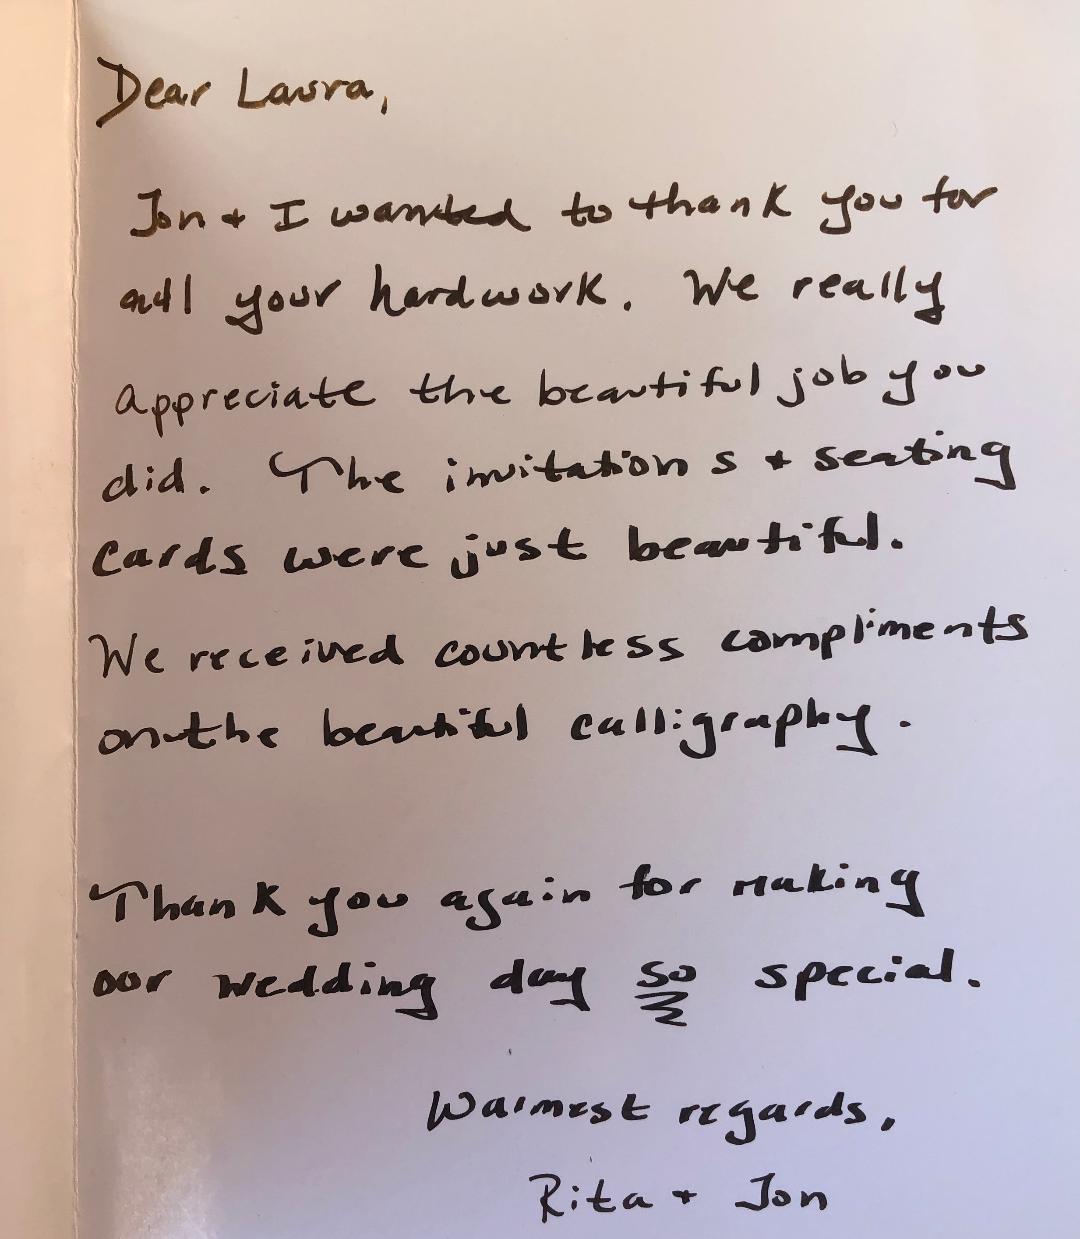 Dear Laura,
Jon + I wanted to thank you for
all your hardwork. We really
appreciate the beautiful job you
did. The invitations + seating
cards were just beautiful.
We received countless compliments
on the beautiful calligraphy.
Thank you again for making
our wedding day so special.
Warmest regards,
Rita + Jon